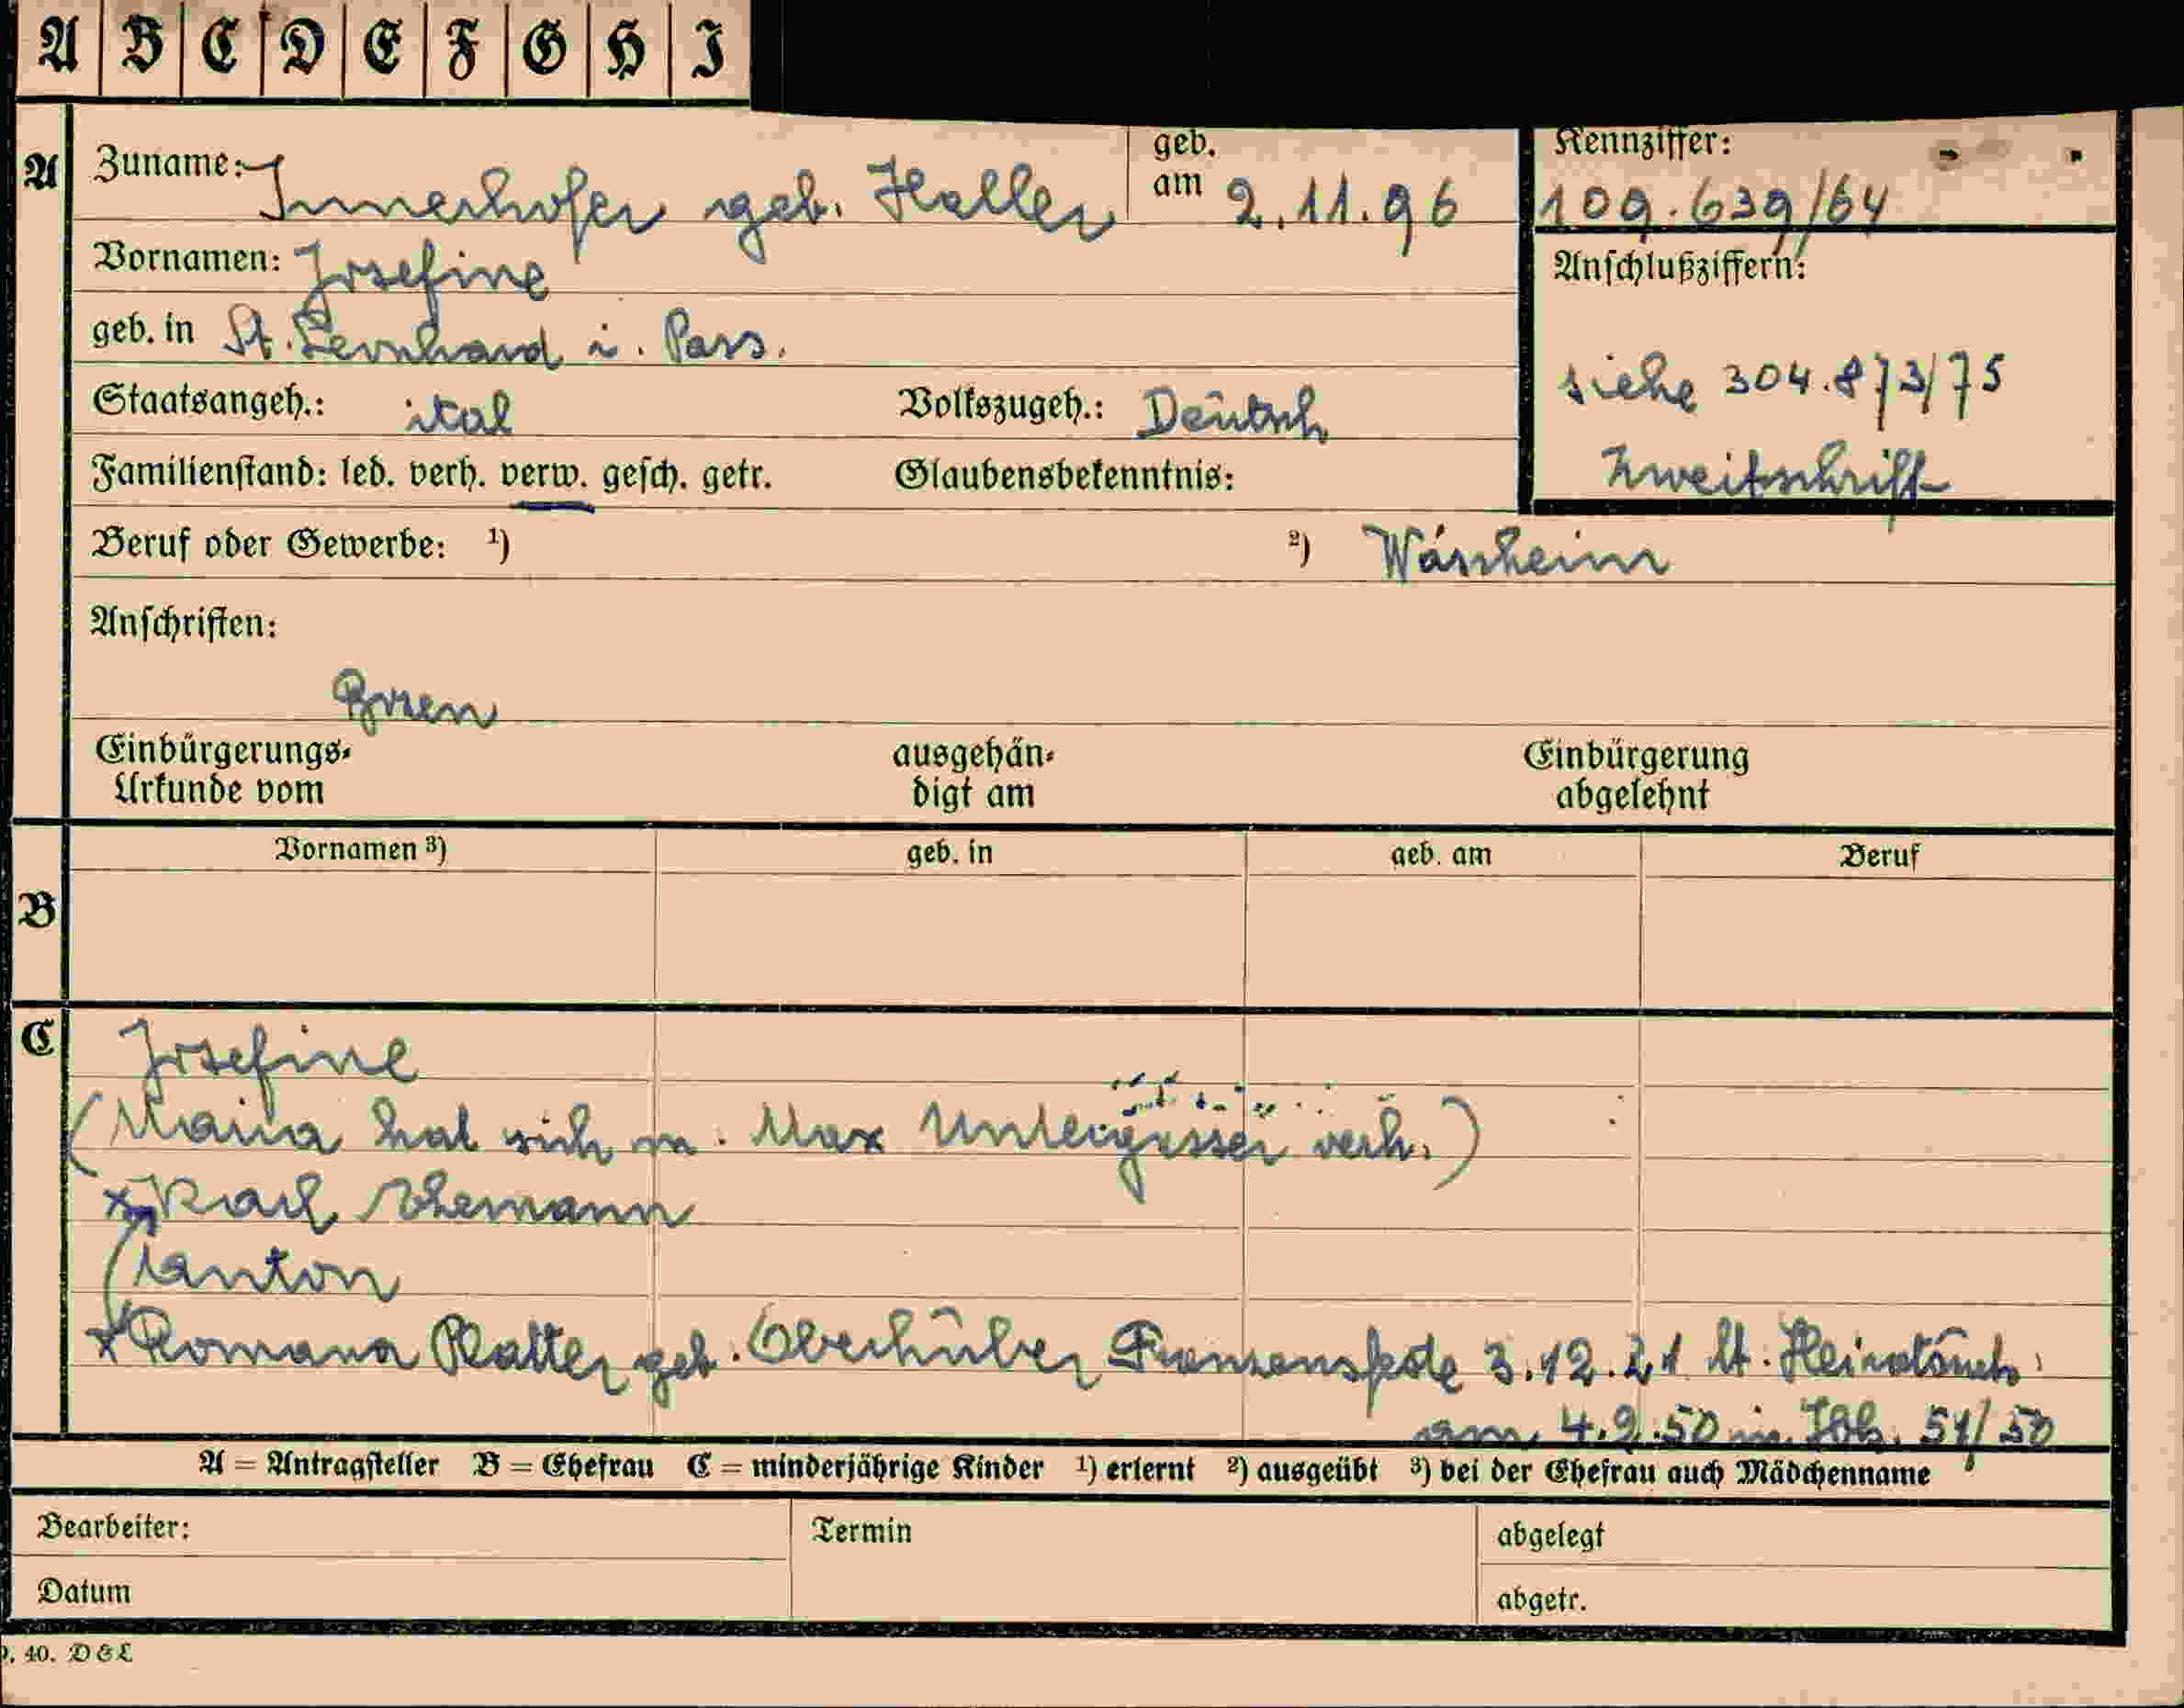 A B C D E F G H I
A Zuname: Innerhofer geb. Haller geb. am 2.11.96 Kennziffer: 109.639/64
Vornamen: Josefine Anschlußziffern:
geb. in St. Leonhard i. Pass.
siehe 304.873/75
Staatsangeh.: ital Volkszugeh.: Deutsch
Zweitschrift
Familienstand: led. verh. verw. gesch. getr. Glaubensbekenntnis:
Beruf oder Gewerbe: ¹) ²)
Anschriften:
Bozen
Einbürgerungs- ausgehän- Einbürgerung
Urkunde vom digt am abgelehnt
Vornamen ³) geb. in geb. am Beruf
B
C Josefine
(Maria hat sich m. Max Untergasser verh.)
Karl Ehemann
Anton
Romana Platter geb. Oberhuber Franzensfeste 3.12.21 lt.
am 4.9.50 in Ibk. 51/50
A = Antragsteller B = Ehefrau C = minderjährige Kinder ¹) erlernt ²) ausgeübt ³) bei der Ehefrau auch Mädchenname
Bearbeiter: Termin abgelegt
Datum abgetr.
40. D&L